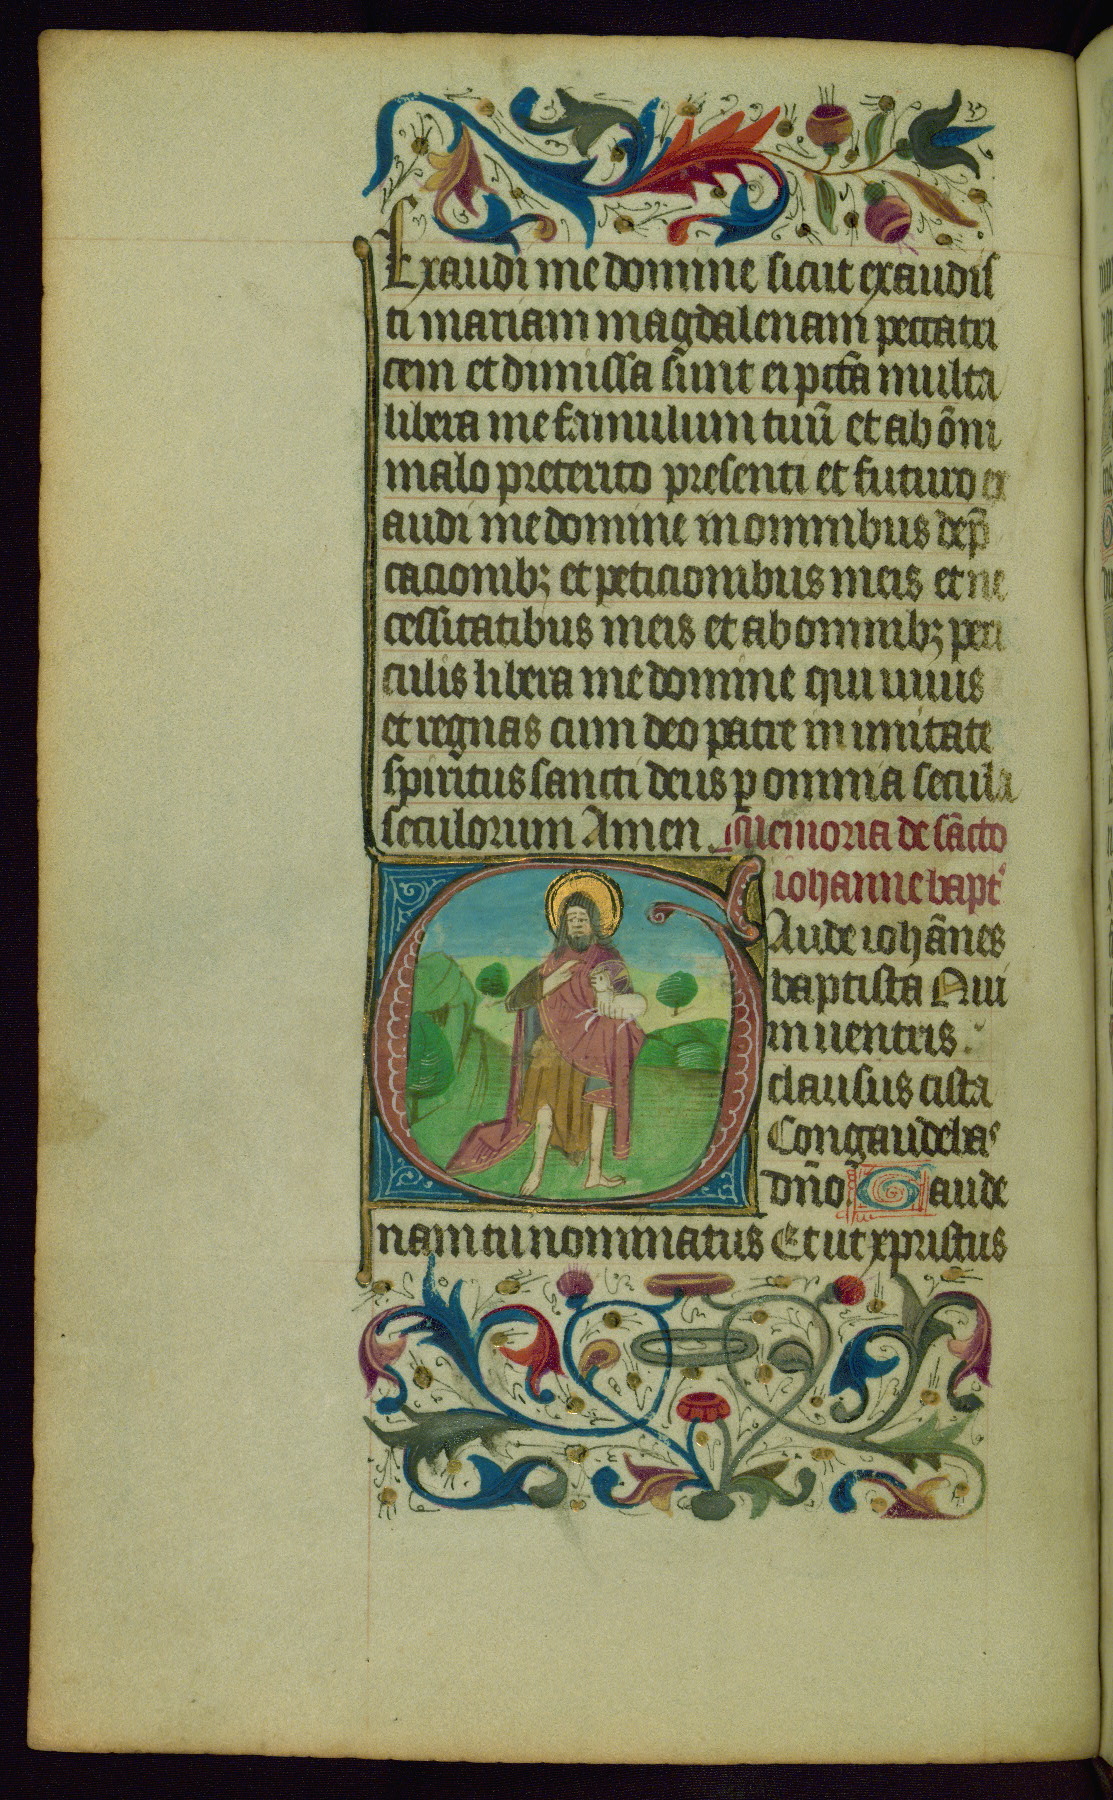 Exaudi me domine sicut exaudis
ti mariam magdalenam peccatri
cem et dimissa sunt ei pctā multa
libera me famulum tuū et ab ōni
malo preterito presenti et futuro ex
audi me domine in omnibus dep̄
cacionibꝫ et peticionibus meis et ne
cessitatibus meis et ab omnibꝫ peri
culis libera me domine qui uiuis
et regnas cum deo patre in unitate
spiritus sancti deus ꝑ omnia secula
seculorum Amen. Memoria de sācto
iohanne bapt
Aude iohānes
baptista Qui
in uentris
clausus cista
Congaudebas
dn̄o Gaude
nam tu nominatus Et ut xpristus